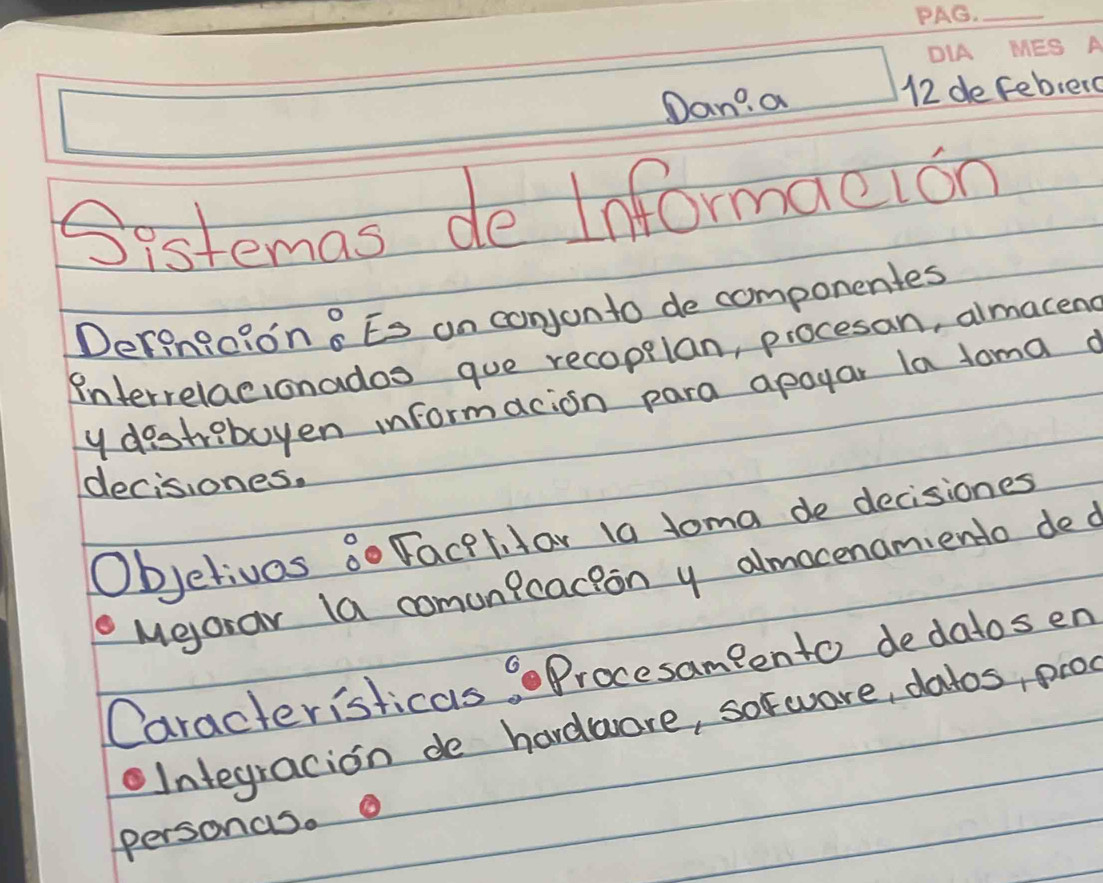 PAG.
DIA MES A
Dania 12 de Febrero
Sistemas de Información
Definición: Es un conjunto de componentes
interrelacionados que recopilan, procesan, almacena
y distribuyen información para apoyar la toma d
decisiones.
Objetivos: • Facilitar la toma de decisiones
• Mejorar la comunicación y almacenamiento de d
Características: • Procesamiento de datos en
• Integración de hardware, sofware, datos, proc
personas. •